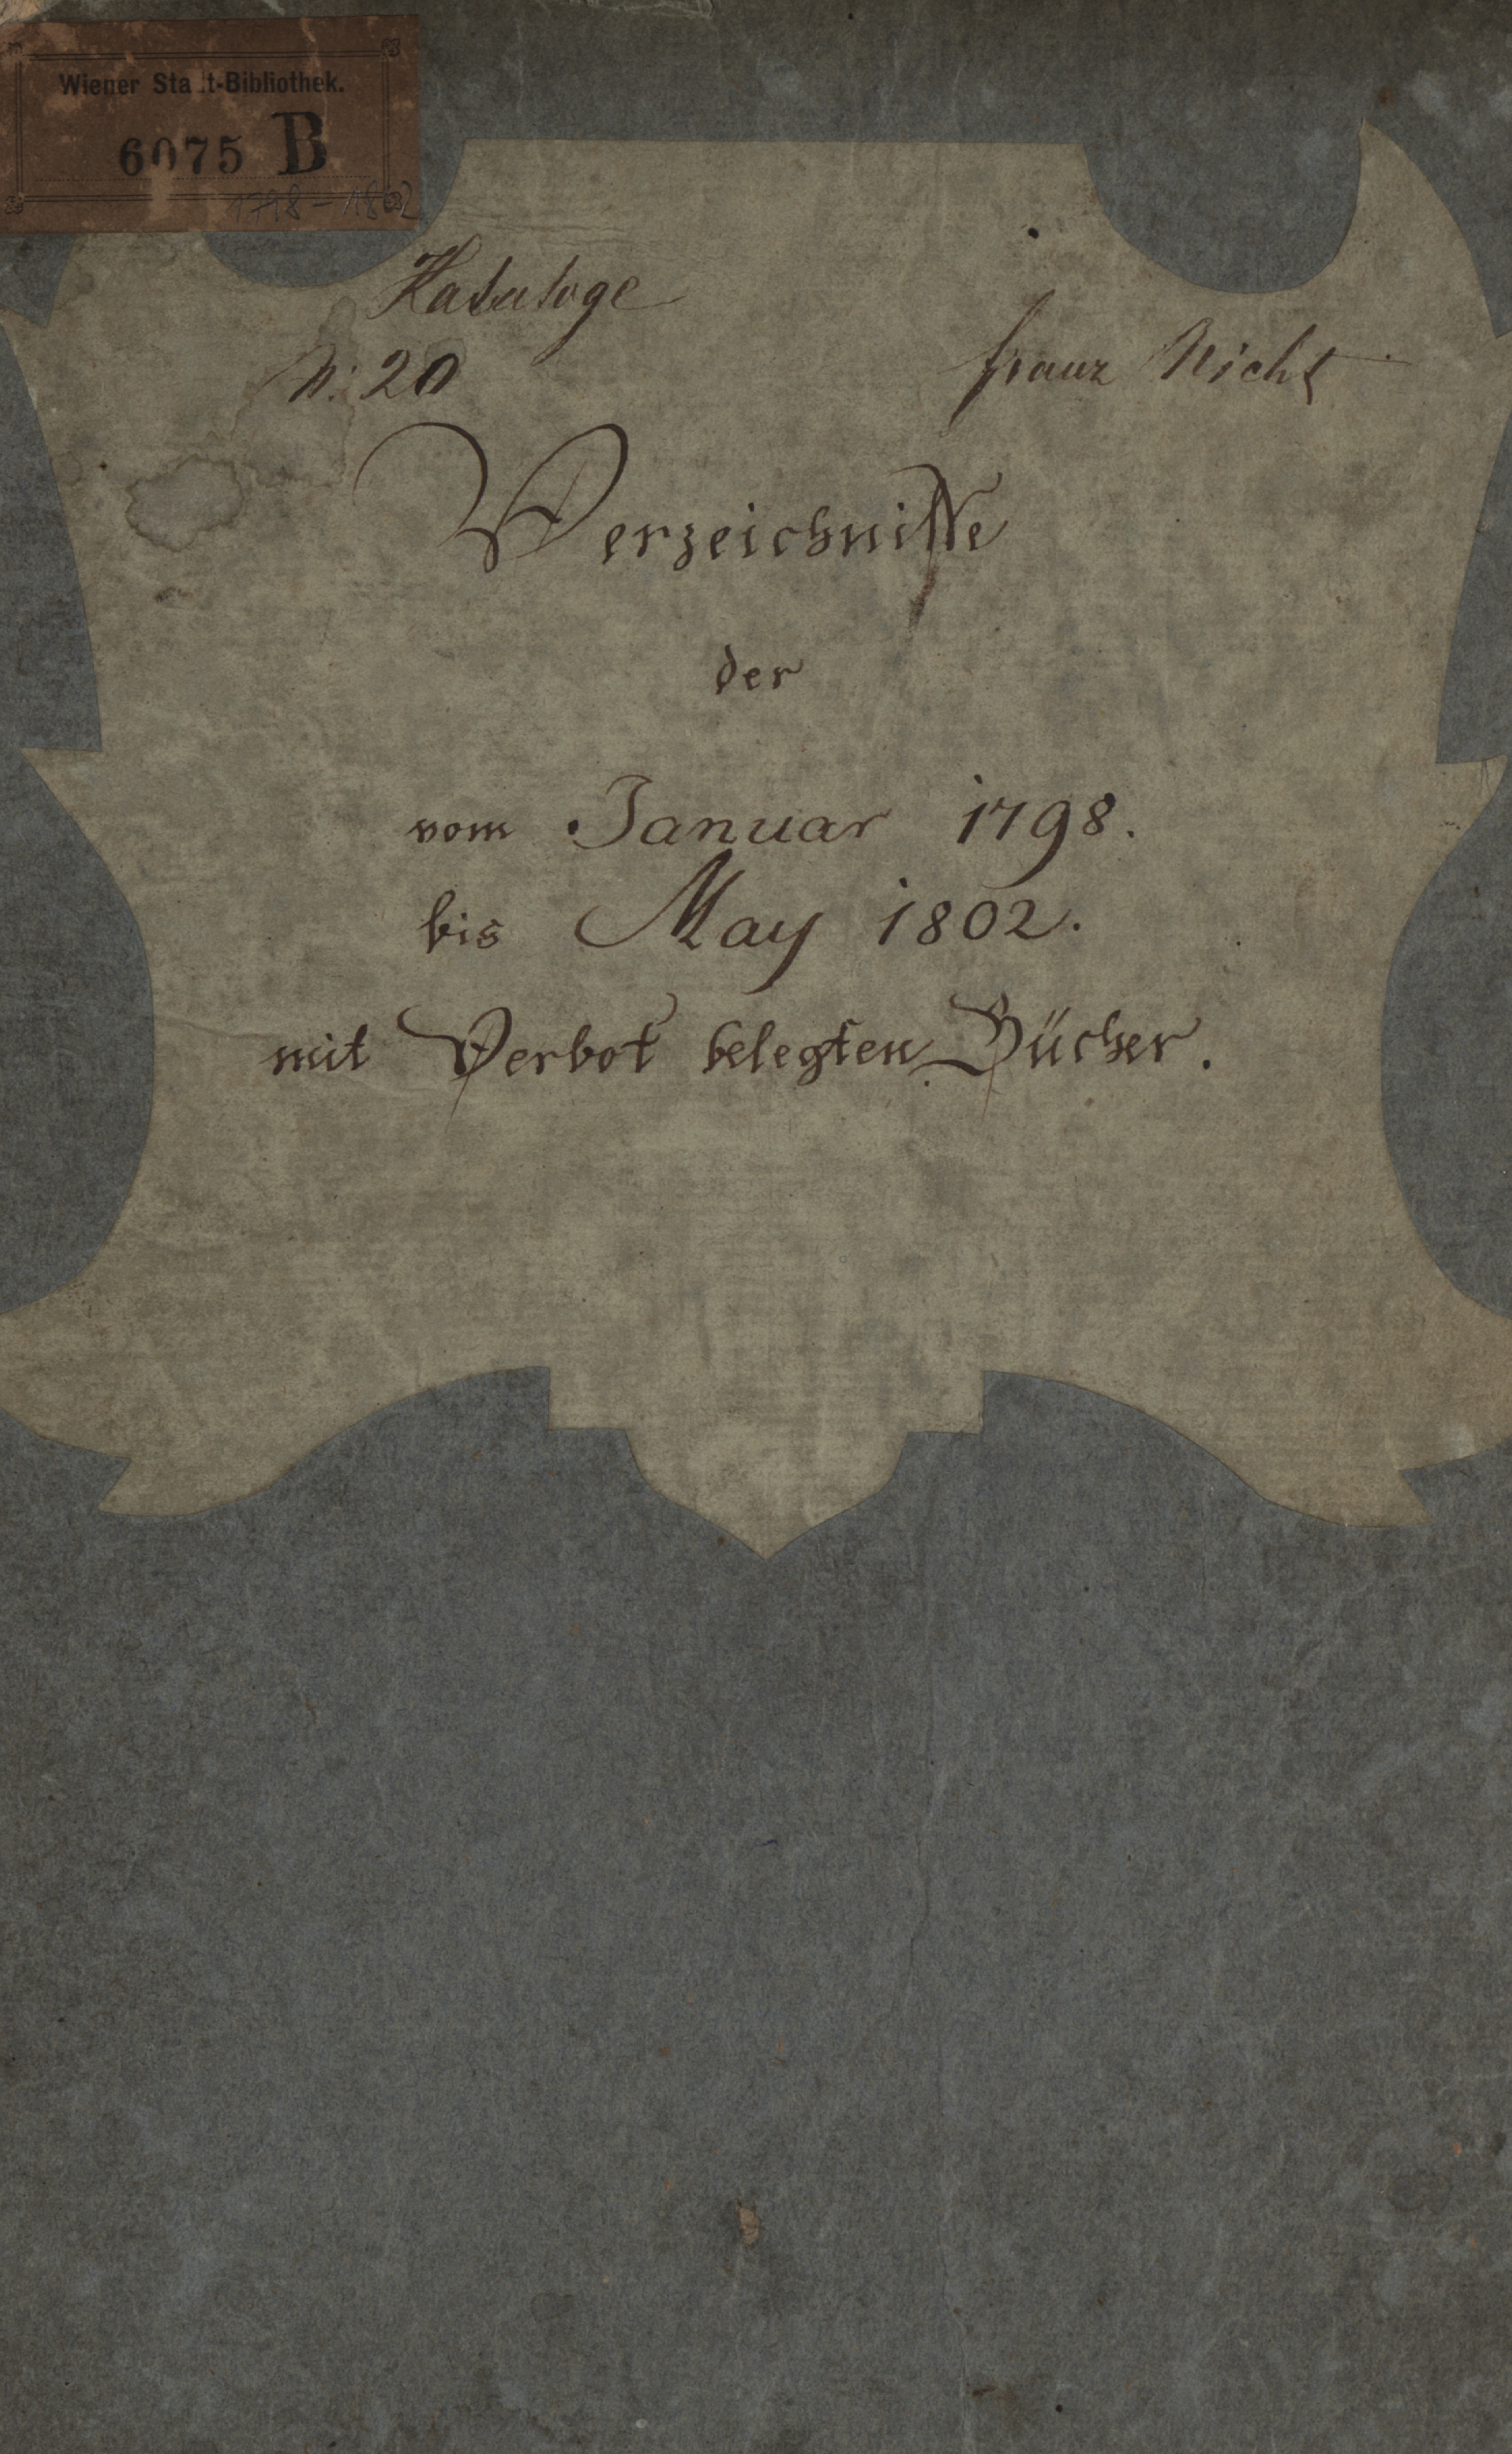 Wiener Stadt-Bibliothek.
6075 B
1798-1802
Kataloge
N: 20
Franz Nicht
Verzeichnisse
der
vom Januar 1798.
bis May 1802.
mit Verbot belegten Bücher.